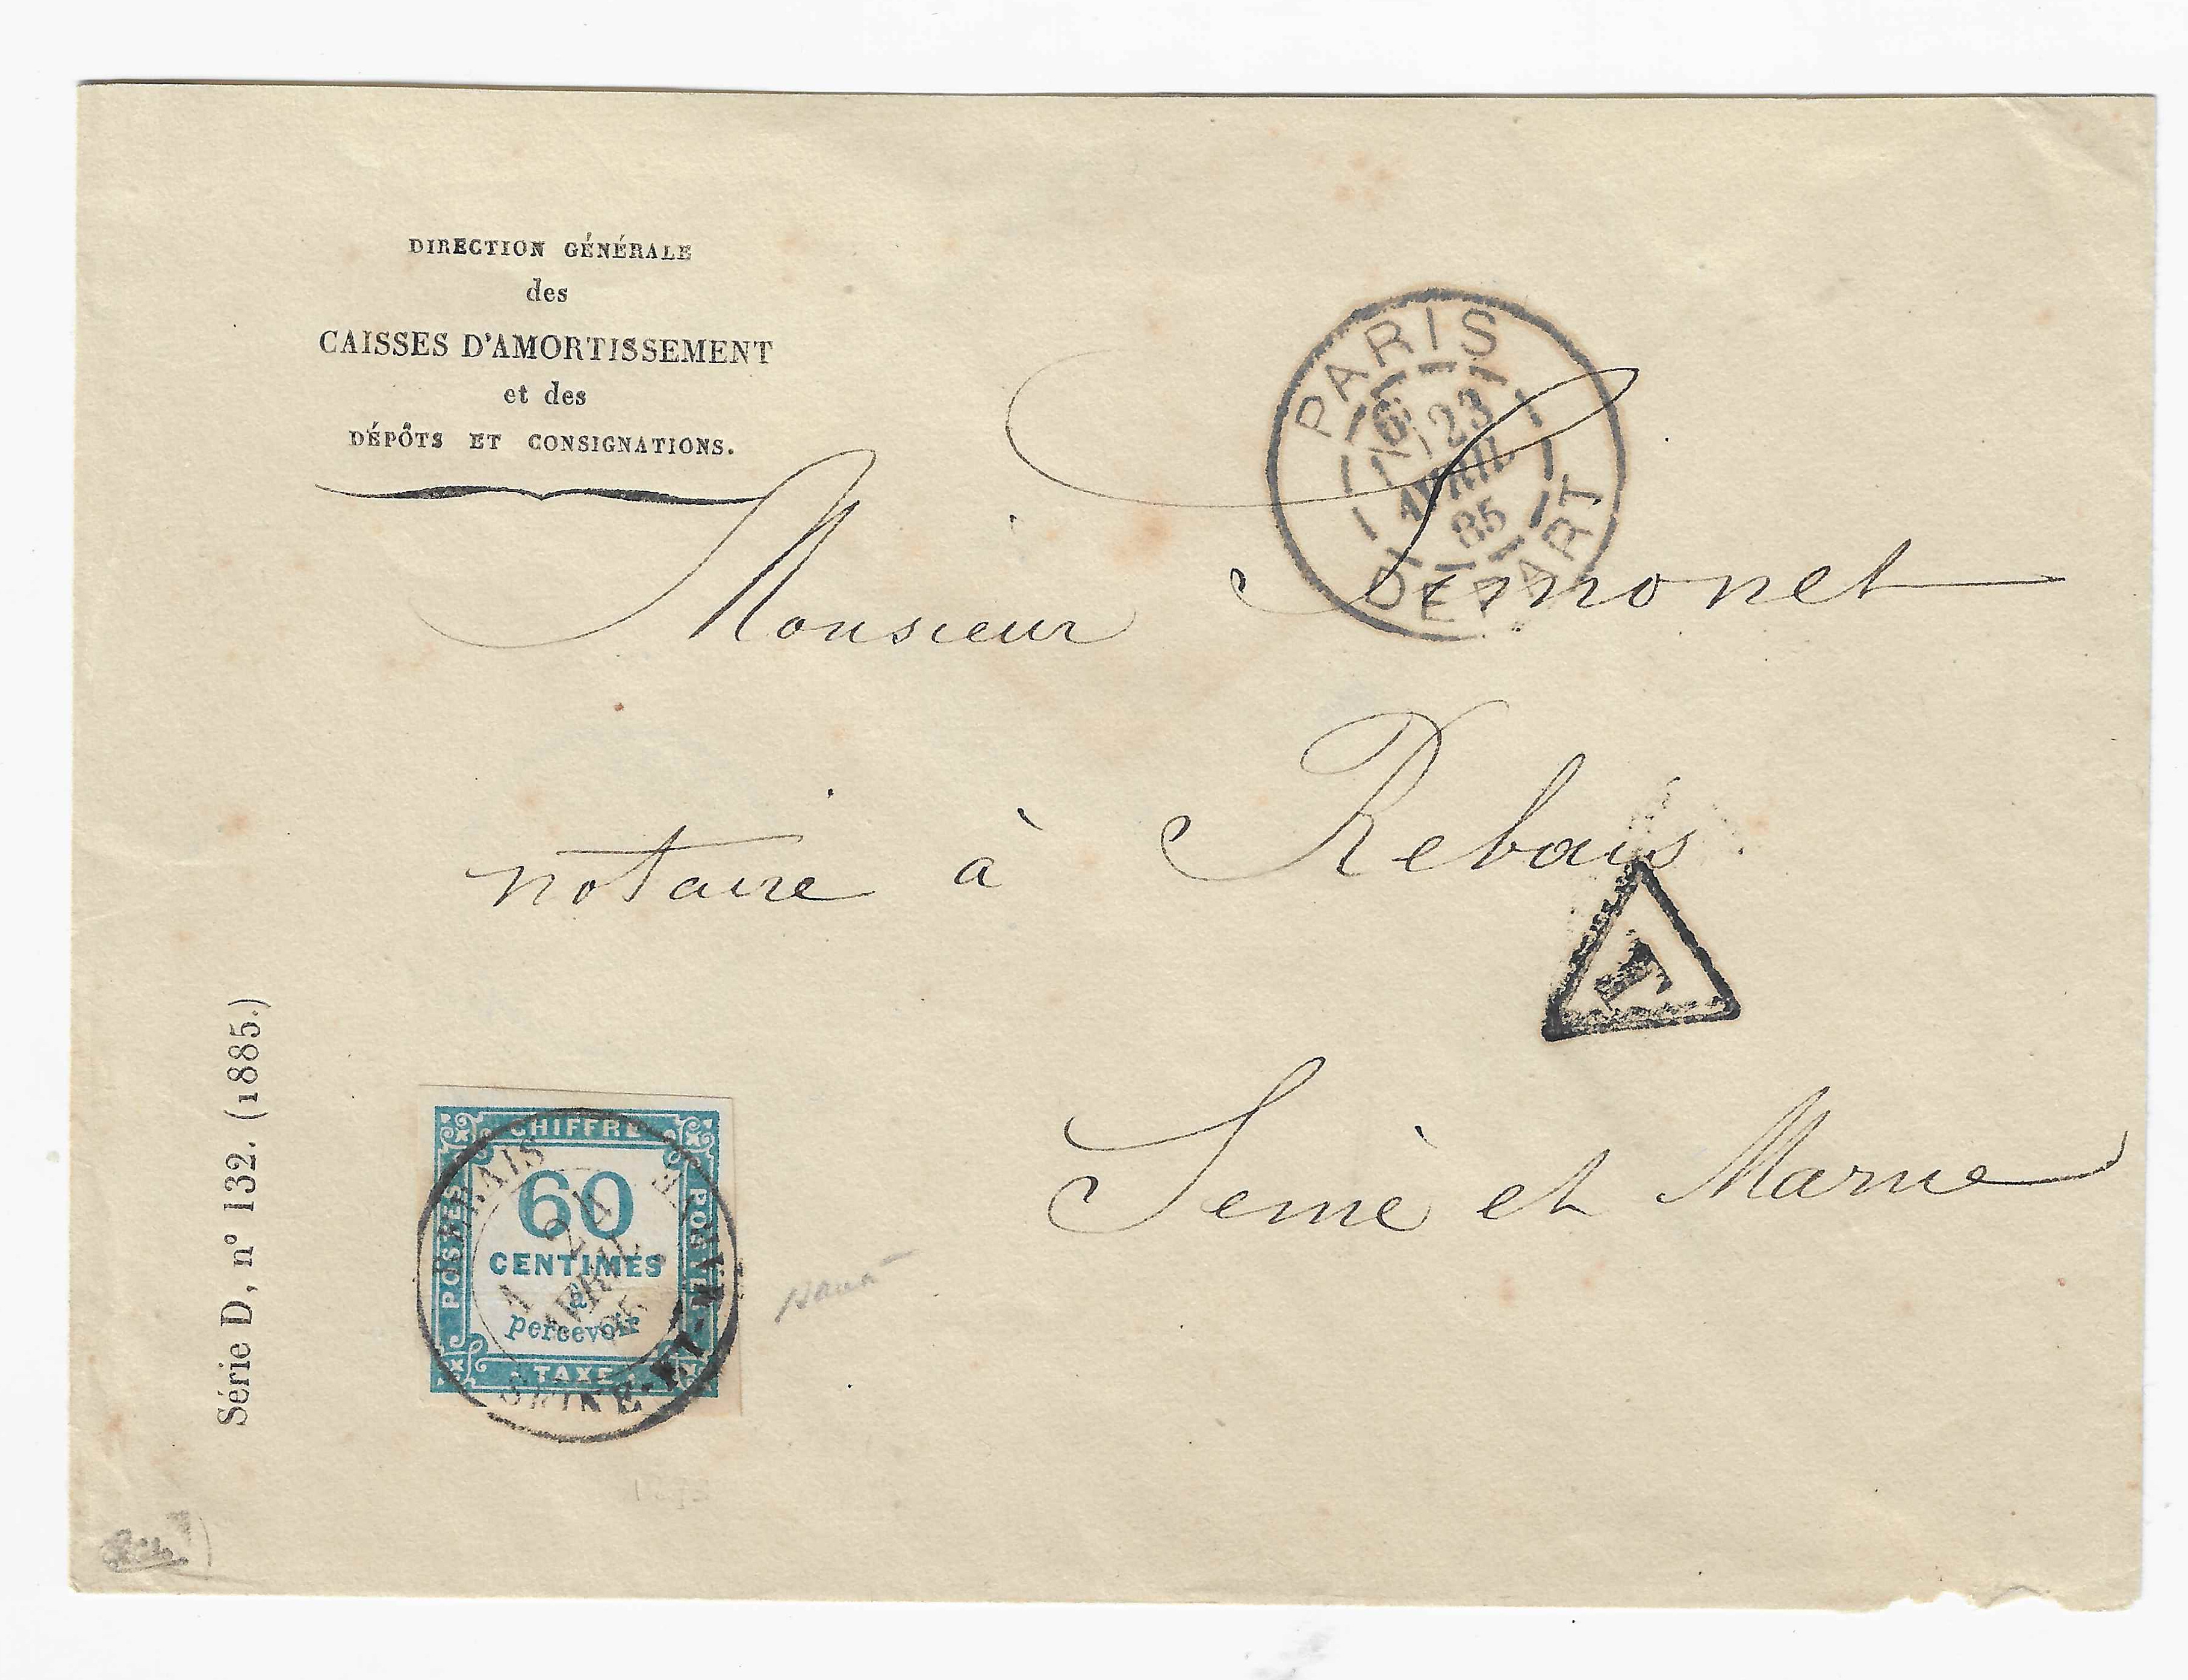 DIRECTION GÉNÉRALE
des
CAISSES D'AMORTISSEMENT
et des
DÉPÔTS ET CONSIGNATIONS.
PARIS
6E
23
AVRIL
85
DEPART
Monsieur Simonet
notaire à Rebais
T
Seine et Marne
Série D, n° 132. (1885.)
CHIFFRE
POSTES
60
CENTIMES
à
percevoir
TAXE
POSTES
REBAIS
24
AVRIL
85
SEINE-ET-MARNE